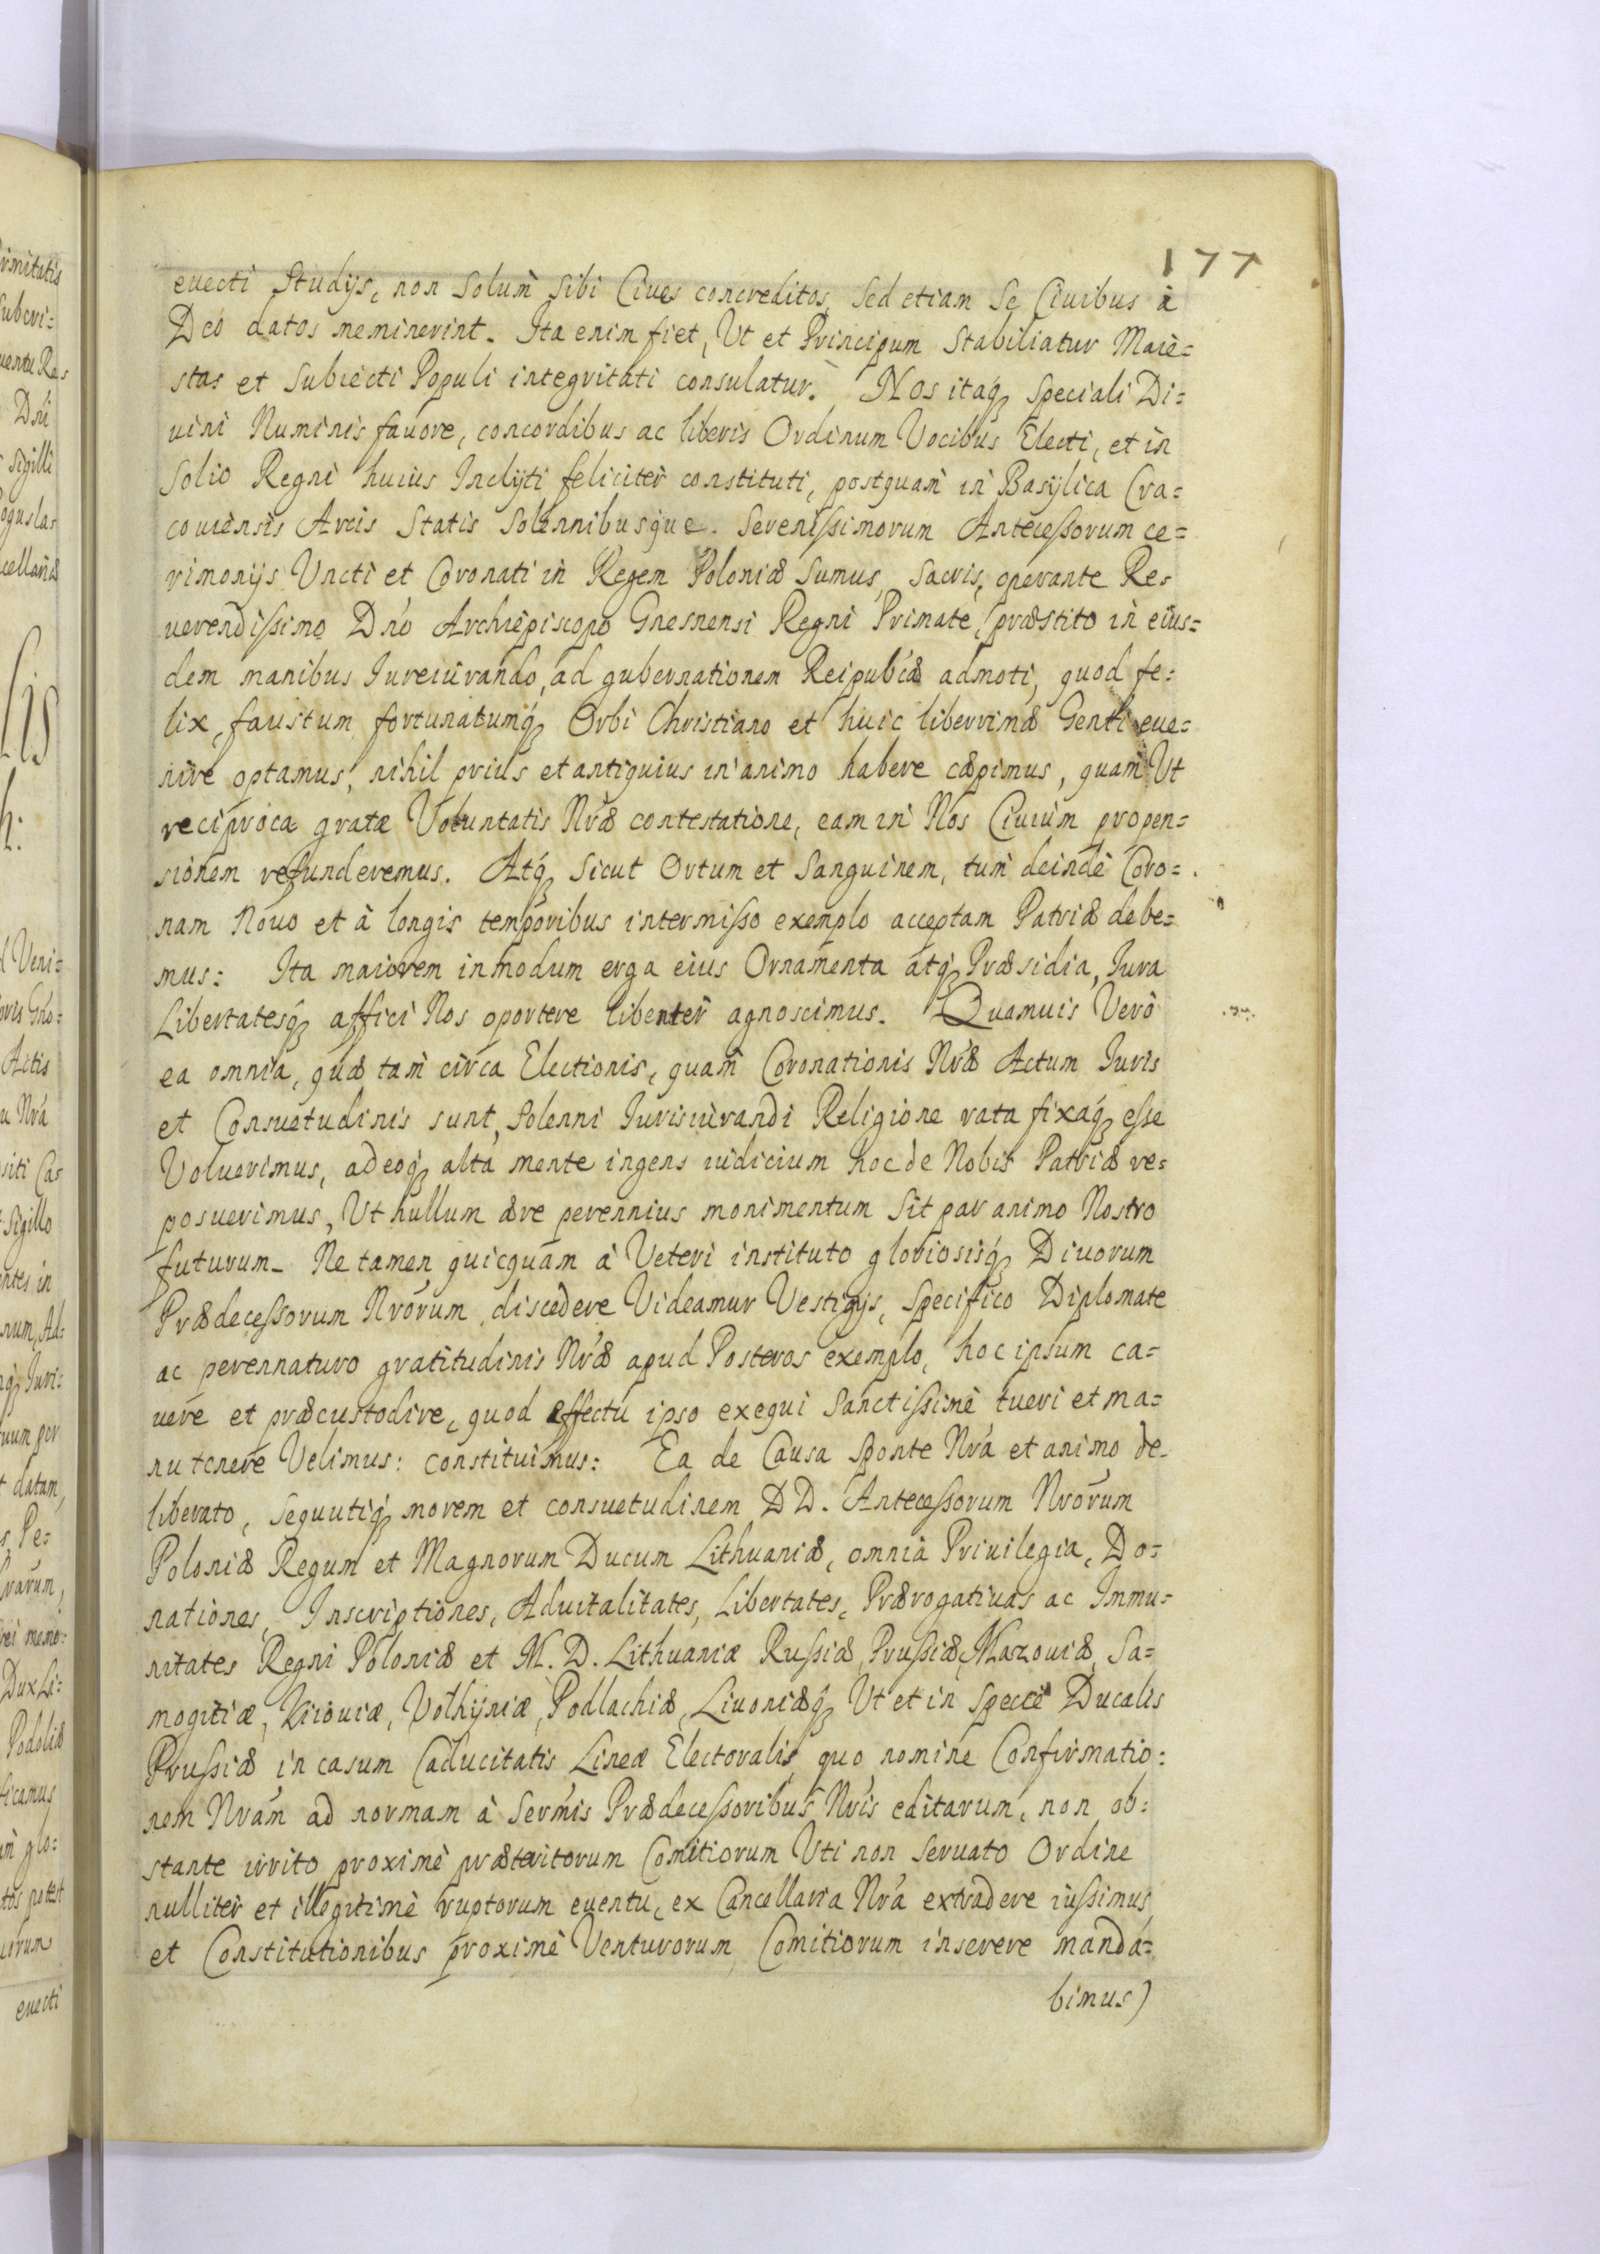 177
euecti Studijs, non Solum̀ Sibi Ciues concreditos, Sed etiam Se Ciuibus à
Deo datos meminerint. Ita enim fiet, Vt et Principum Stabiliatur Maie=
stas et Subiecti Populi integritati consulatur. Nos itaq́ Speciali Di=
uini Numinis fauore, concordibus ac liberis Ordinum Vocibus Electi, et in
Solio Regni huius Inclyti feliciter̀ constituti, postquam̀ in Basylica Cra=
couiensis Arcis Statis Solennibusque Serenissimorum Antecessorum ce=
rimonijs Vncti et Coronati in Regem Poloniæ Sumus, Sacris, operante Re=
uerendissimo Dńo Archiepiscopo Gnesnensi Regni Primate, præstito in eius=
dem manibus Iureiurando, ad gubernationem Reipubĺcæ admoti, quod fe=
lix, faustum fortunatumq́ Orbi Christiano et huic liberrimæ Genti eue=
nire optamus, nihil prius et antiquius in animo habere cæpimus, quam̀ Vt
reciproca gratæ Voluntatis Nŕæ contestatione, eam in Nos Ciuium propen=
sionem refunderemus. Atq́ Sicut Ortum et Sanguinem, tum̀ deindè Coro=
nam Nouo et à longis temporibus intermisso exemplo acceptam Patriæ debe=
mus: Ita maiorem inmodum erga eius Ornamenta atq́ Præsidia, Iura
Libertatesq́ affici Nos oportere libenter̀ agnoscimus. Quamuis Verò
ea omnia, quæ tam̀ circa Electionis, quam̀ Coronationis Nŕæ Actum Iuris
et Consuetudinis sunt, Solenni Iurisiurandi Religione rata fixaq́ esse
Voluerimus, adeoq́ alta mente ingens iudicium hoc de Nobis Patriæ re=
posuerimus, Vt nullum ære perennius monimentum Sit par animo Nostro
futurum. Ne tamen quicquam à Veteri instituto gloriosisq́ Diuorum
Prædecessorum Nŕorum discedere Videamur Vestigijs, Specifico Diplomate
ac perennaturo gratitudinis Nŕæ apud Posteros exemplo, hoc ipsum ca=
uere et præcustodire, quod effectu ipso exequi Sanctissimè tueri et ma=
nutenere Velimus: constituimus: Ea de Causa Sponte Nŕa et animo de=
liberato, Sequutiq́ morem et consuetudinem DD. Antecessorum Nŕorum
Poloniæ Regum et Magnorum Ducum Lithuaniæ, omnia Priuilegia, Do=
nationes, Inscriptiones, Aduitalitates, Libertates, Prærogatiuas ac Immu=
nitates Regni Poloniæ et M. D. Lithuaniæ Russiæ, Prussiæ, Mazouiæ, Sa=
mogitiæ, Kiouiæ, Volhyniæ, Podlachiæ, Liuoniæq́ Vt et in Specie Ducalis
Prussiæ in casum Caducitatis Lineæ Electoralis, quo nomine Confirmatio=
nem Nŕam ad normam à Serḿis Prædecessoribus Nŕis editarum, non ob=
stante irrito proximè præteritorum Comitiorum Vti non Seruato Ordine
nulliter̀ et illegitimè ruptorum euentu, ex Cancellaria Nŕa extradere iussimus
et Constitutionibus proximè Venturorum Comitiorum inserere manda=
bimus)